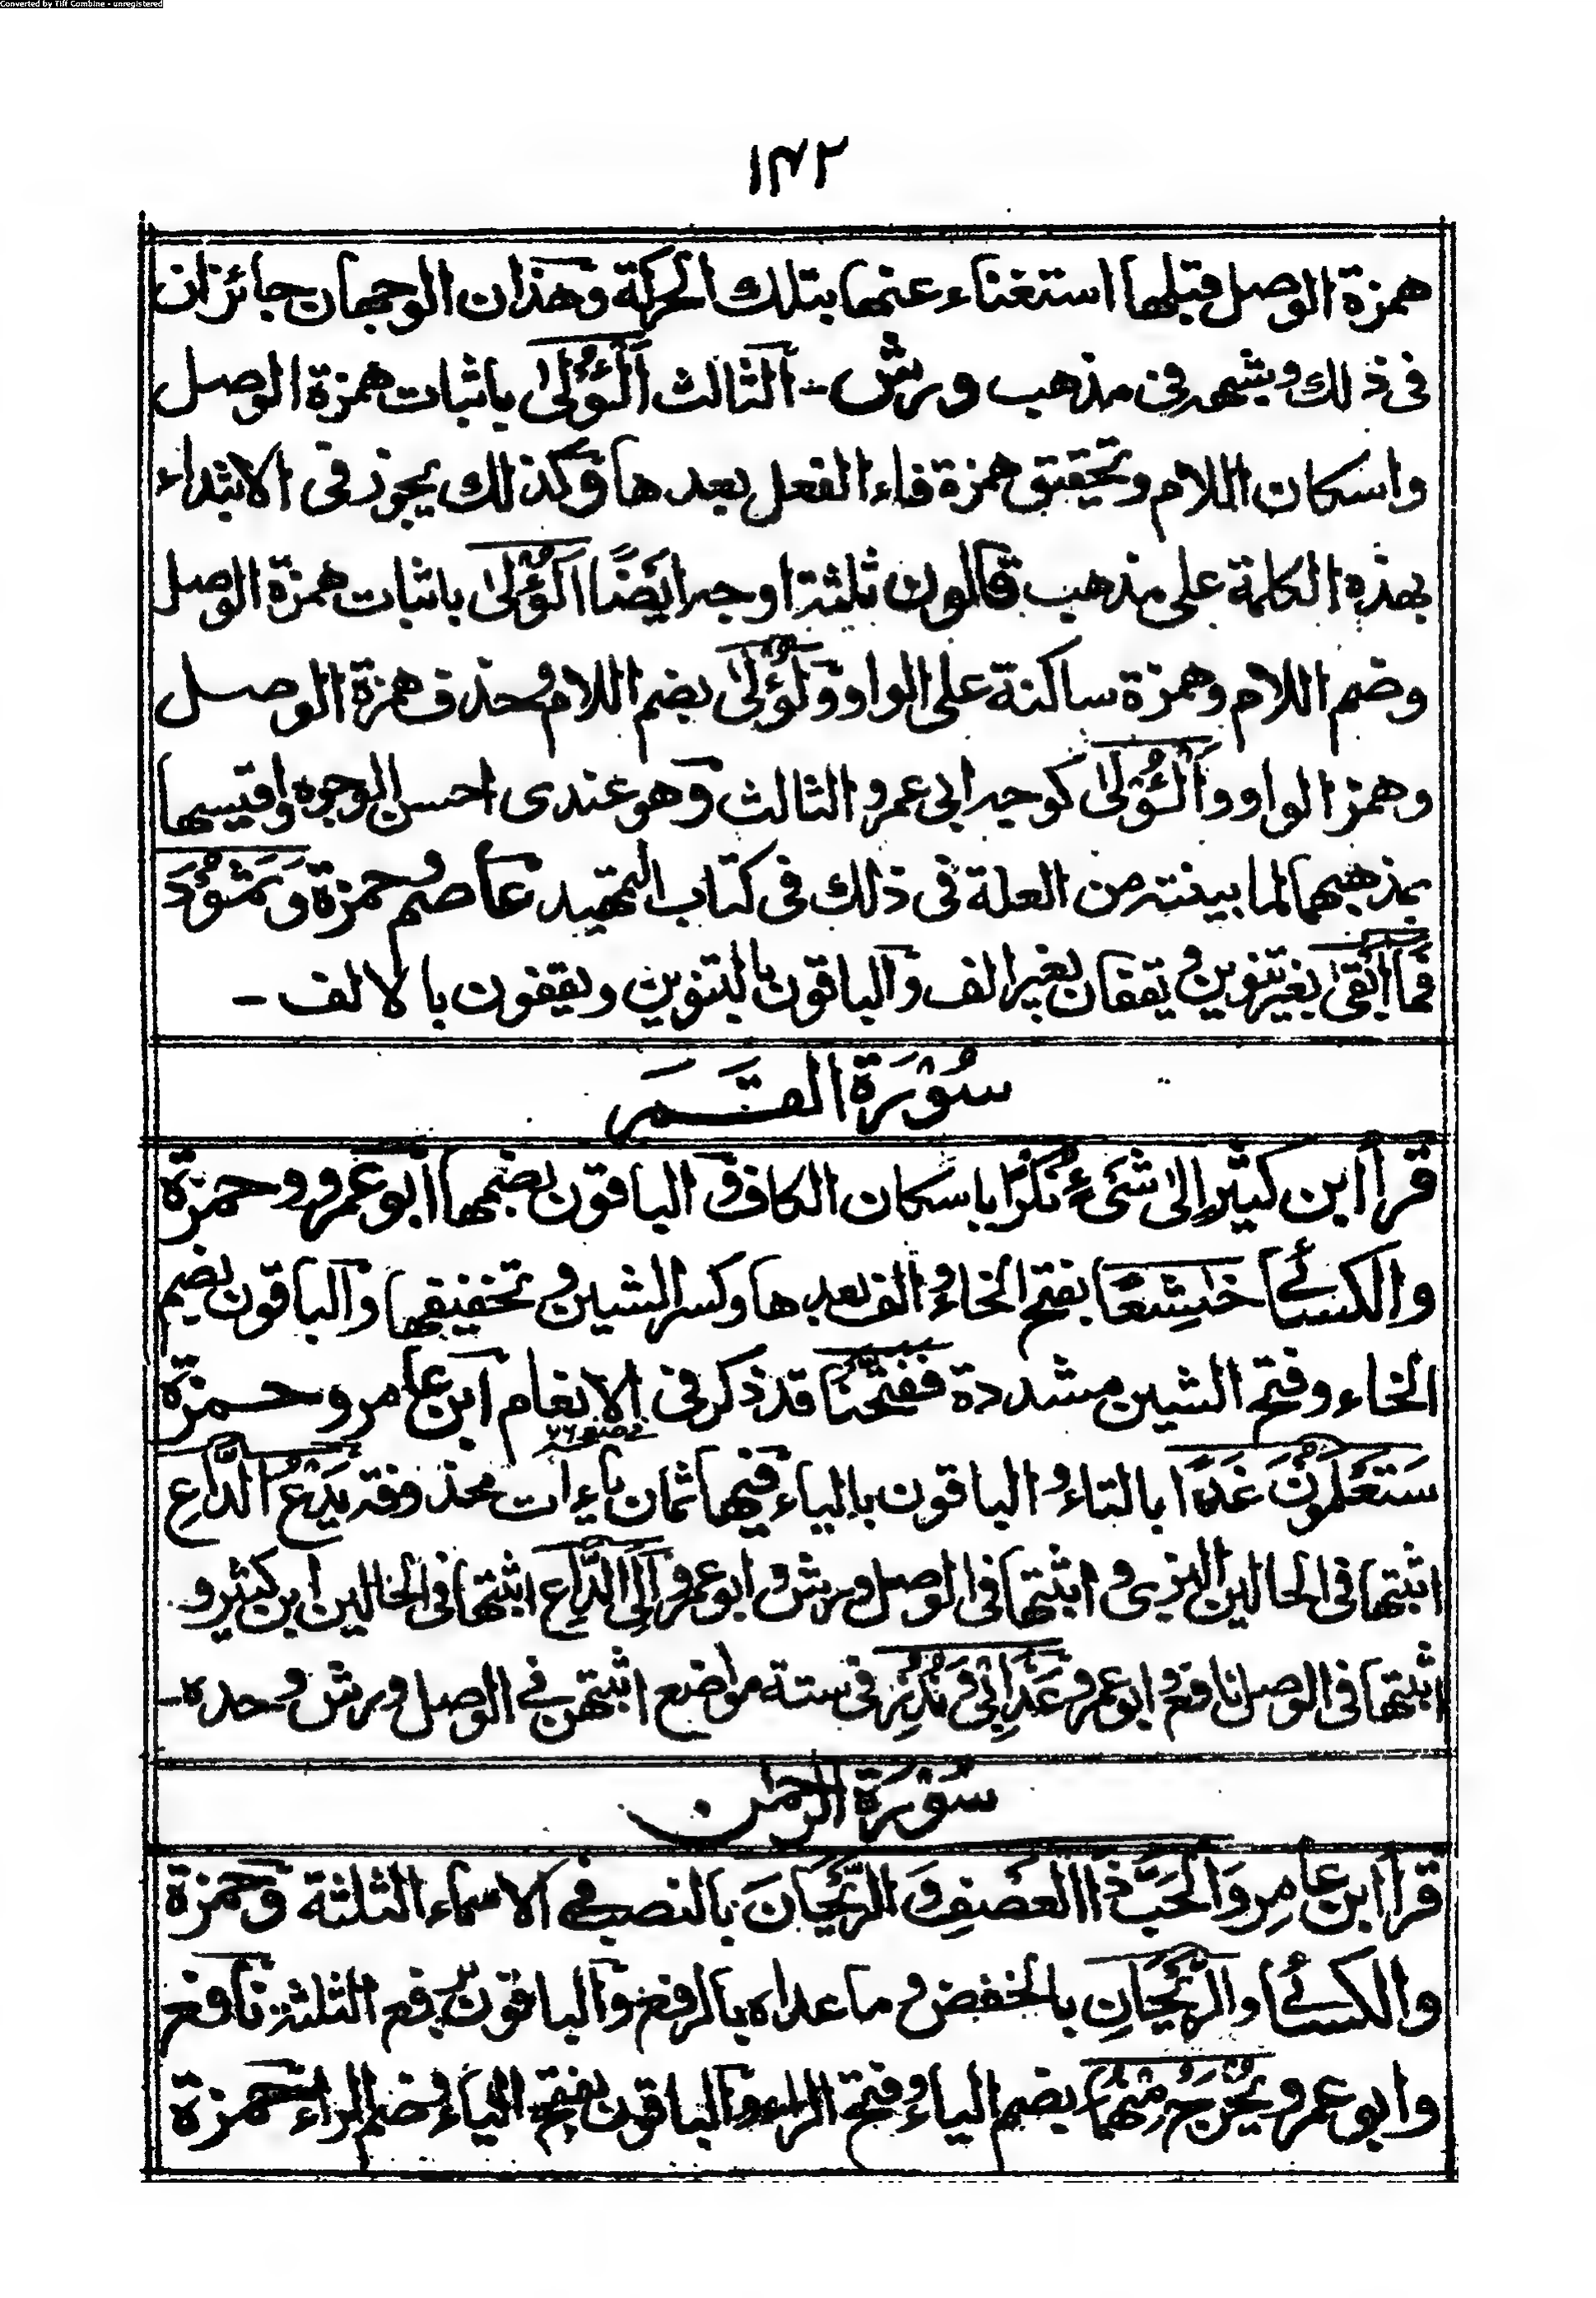 Converted by Tiff Combine - unregistered
١٤٢
همزة الوصل قبلها استغناء عنها بتلك الحركة وهذان الوجهان جائزان
فى ذلك وشبهه فى مذهب ورش - الثالث اَلْؤُلىٰ باثبات همزة الوصل
واسكان اللام وتحقيق همزة فاء الفعل بعدها وكذلك يجوز فى الابتداء
بهذه الكلمة على مذهب قالون ثلثة اوجه ايضًا اَلُؤْلىٰ باثبات همزة الوصل
وضم اللام وهمزة ساكنة على الواو ولُؤْلىٰ بضم اللام وحذف همزة الوصل
وهمز الواو واَلْؤُلىٰ كوجه ابى عمرو الثالث وهو عندى احسن الوجوه واقيسها
بمذهبهما لما بينته من العلة فى ذلك فى كتاب التمهيد عاصم وحمزة وَثَمُوْدَ
فَمَا اَبْقىٰ بغير تنوين ويقفان بغير الف والباقون بالتنوين ويقفون بالالف -
سُوْرَةُ القَمَر
قرأ ابن كثير إلىٰ شَىْءٍ نُكْرٍ باسكان الكاف والباقون بضمها ابو عمرو وحمزة
والكسائے خٰشِعًا بفتح الخاء والف بعدها وكسر الشين وتخفيفها والباقون بضم
الخاء وفتح الشين مشددة ففتحنا قد ذكر فى الانعام ابن عامر وحمزة
سَتَعْلَمُوْنَ غَدًا بالتاء والباقون بالياء فيها ثمان ياءات محذوفة يَدْعُ الدَّاعِ
اثبتها فى الحالين البزى واثبتها فى الوصل ورش وابو عمرو اِلَى الدَّاعِ اثبتها فى الحالين ابن كثير و
اثبتها فى الوصل نافع وابو عمرو عَذَابِىْ وَنُذُرِ فى ستة مواضع اثبتهن فے الوصل ورش وحده -
سُوْرَةُ الرحمٰن
قرأ ابن عامر وَالْحَبَّ ذَا الْعَصْفِ وَ الرَّيْحَانَ بالنصب فے الاسماء الثلثة وحمزة
والكسائے والرَّيْحَانِ بالخفض وما عداه بالرفع والباقون برفع الثلثة نافع
وابو عمرو يُخْرَجُ مِنْهُمَا بضم الياء وفتح الراء والباقون بفتح الياء وضم الراء حمزة